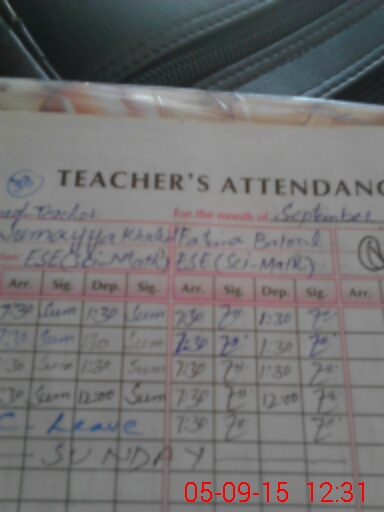 TEACHER'S ATTENDANC
Teacher For the month of September
Sumayya Khalid Fatima Batool
ESE (Sci-Math) ESE (Sci-Math)
Arr. Sig. Dep. Sig. Arr. Sig. Dep. Sig. Arr.
7:30 Sum 1:30 Sum 7:30 1:30
7:30 Sum 1:30 Sum 7:30 1:30
7:30 Sum 1:30 Sum 7:30 1:30
:30 Sum 12:00 Sum 7:30 12:00
C - Leave 7:30
- SUNDAY -
05-09-15 12:31